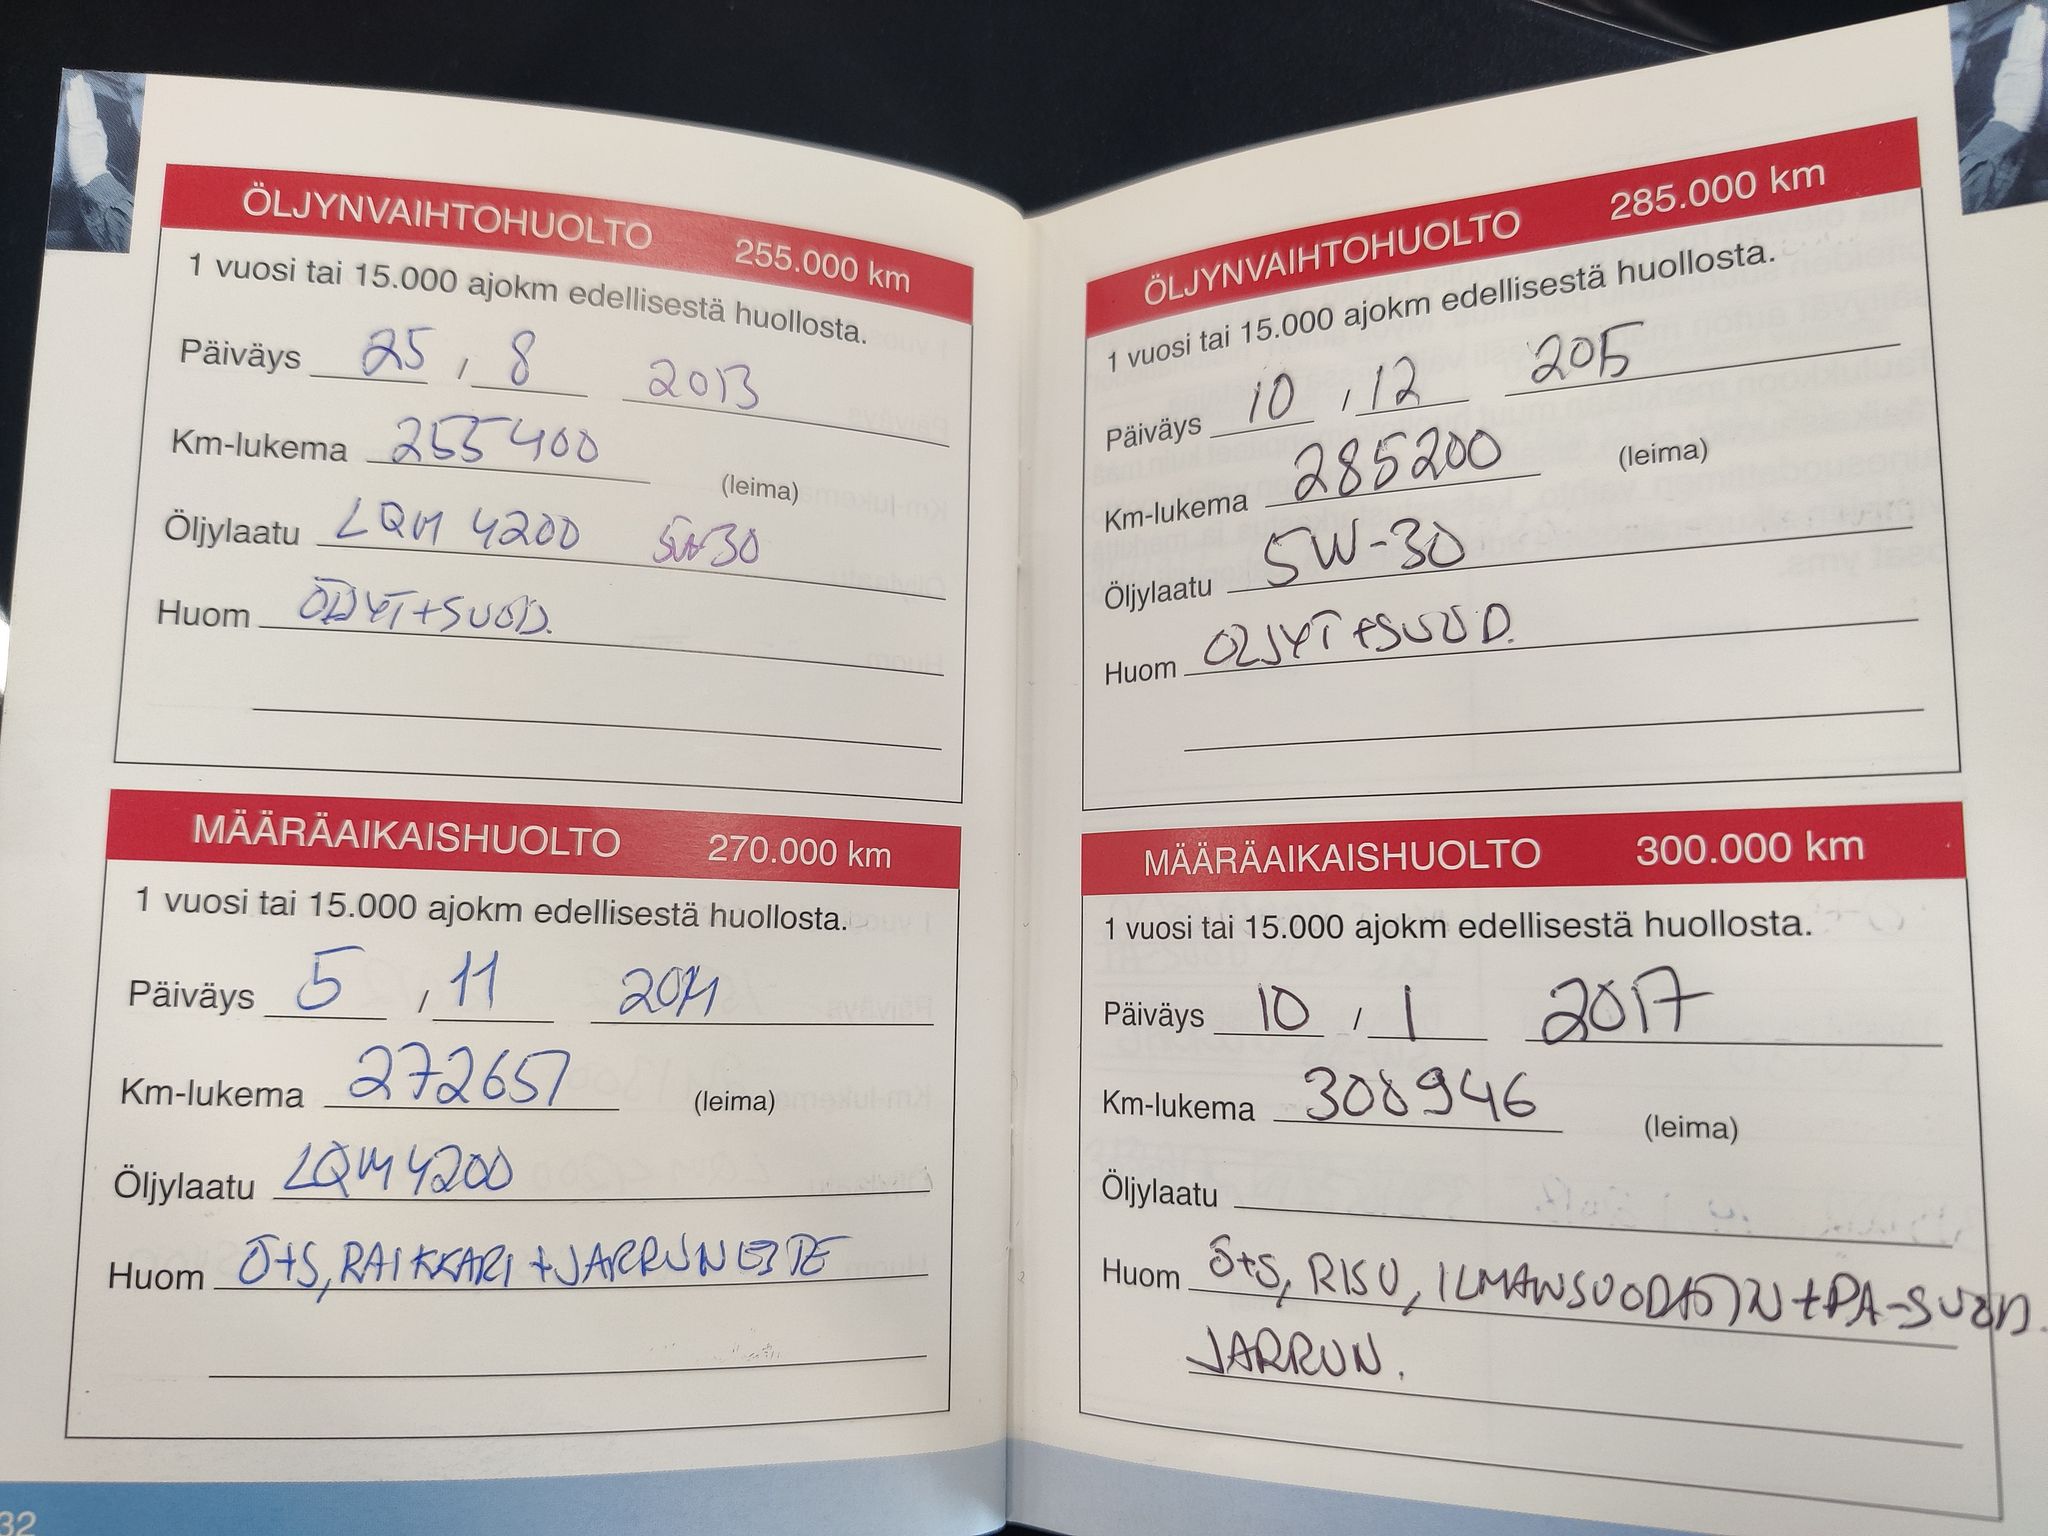 ÖLJYNVAIHTOHUOLTO 255.000 km
1 vuosi tai 15.000 ajokm edellisestä huollosta.
Päiväys 25 , 8 2013
Km-lukema 255400
(leima)
Öljylaatu LQM 4200 5W30
Huom ÖLJYT+SUOD.
MÄÄRÄAIKAISHUOLTO 270.000 km
1 vuosi tai 15.000 ajokm edellisestä huollosta.
Päiväys 5 , 11
Km-lukema 272657
(leima)
Öljylaatu LQM 4200
Huom Ö+S, RAIKKARI +JARRUNESTE
32
ÖLJYNVAIHTOHUOLTO 285.000 km
1 vuosi tai 15.000 ajokm edellisestä huollosta.
Päiväys 10 , 12 2015
Km-lukema 285200
(leima)
Öljylaatu 5W-30
Huom ÖLJYT+SUOD.
MÄÄRÄAIKAISHUOLTO 300.000 km
1 vuosi tai 15.000 ajokm edellisestä huollosta.
Päiväys 10 / 1 2017
Km-lukema 308946
(leima)
Öljylaatu
Huom Ö+S, RISU, +PA-SUOD.
JARRUN.